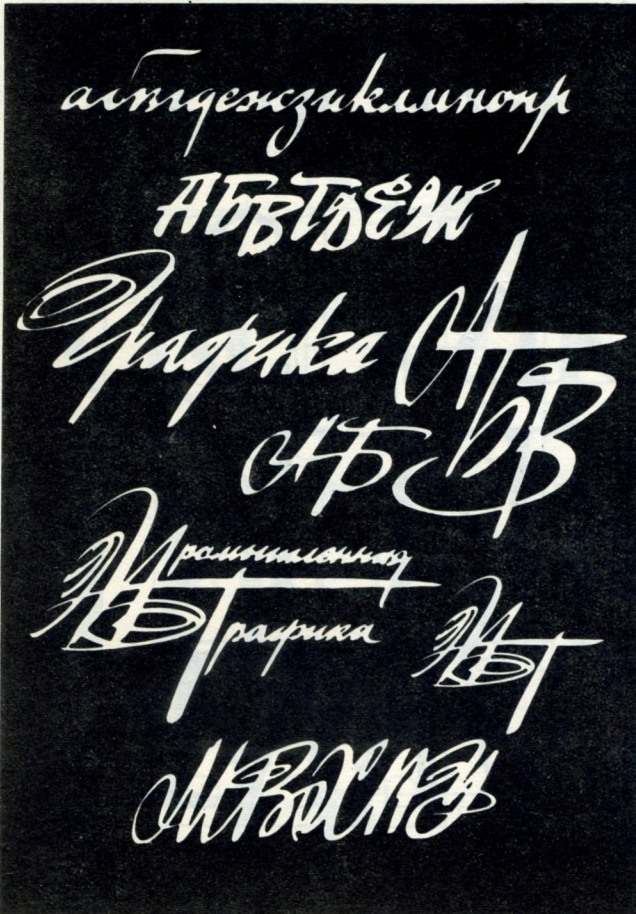 абвгдежзиклмнопр
АБВГДЕЖ
Графика АБВ
АБ
Промышленная
Графика